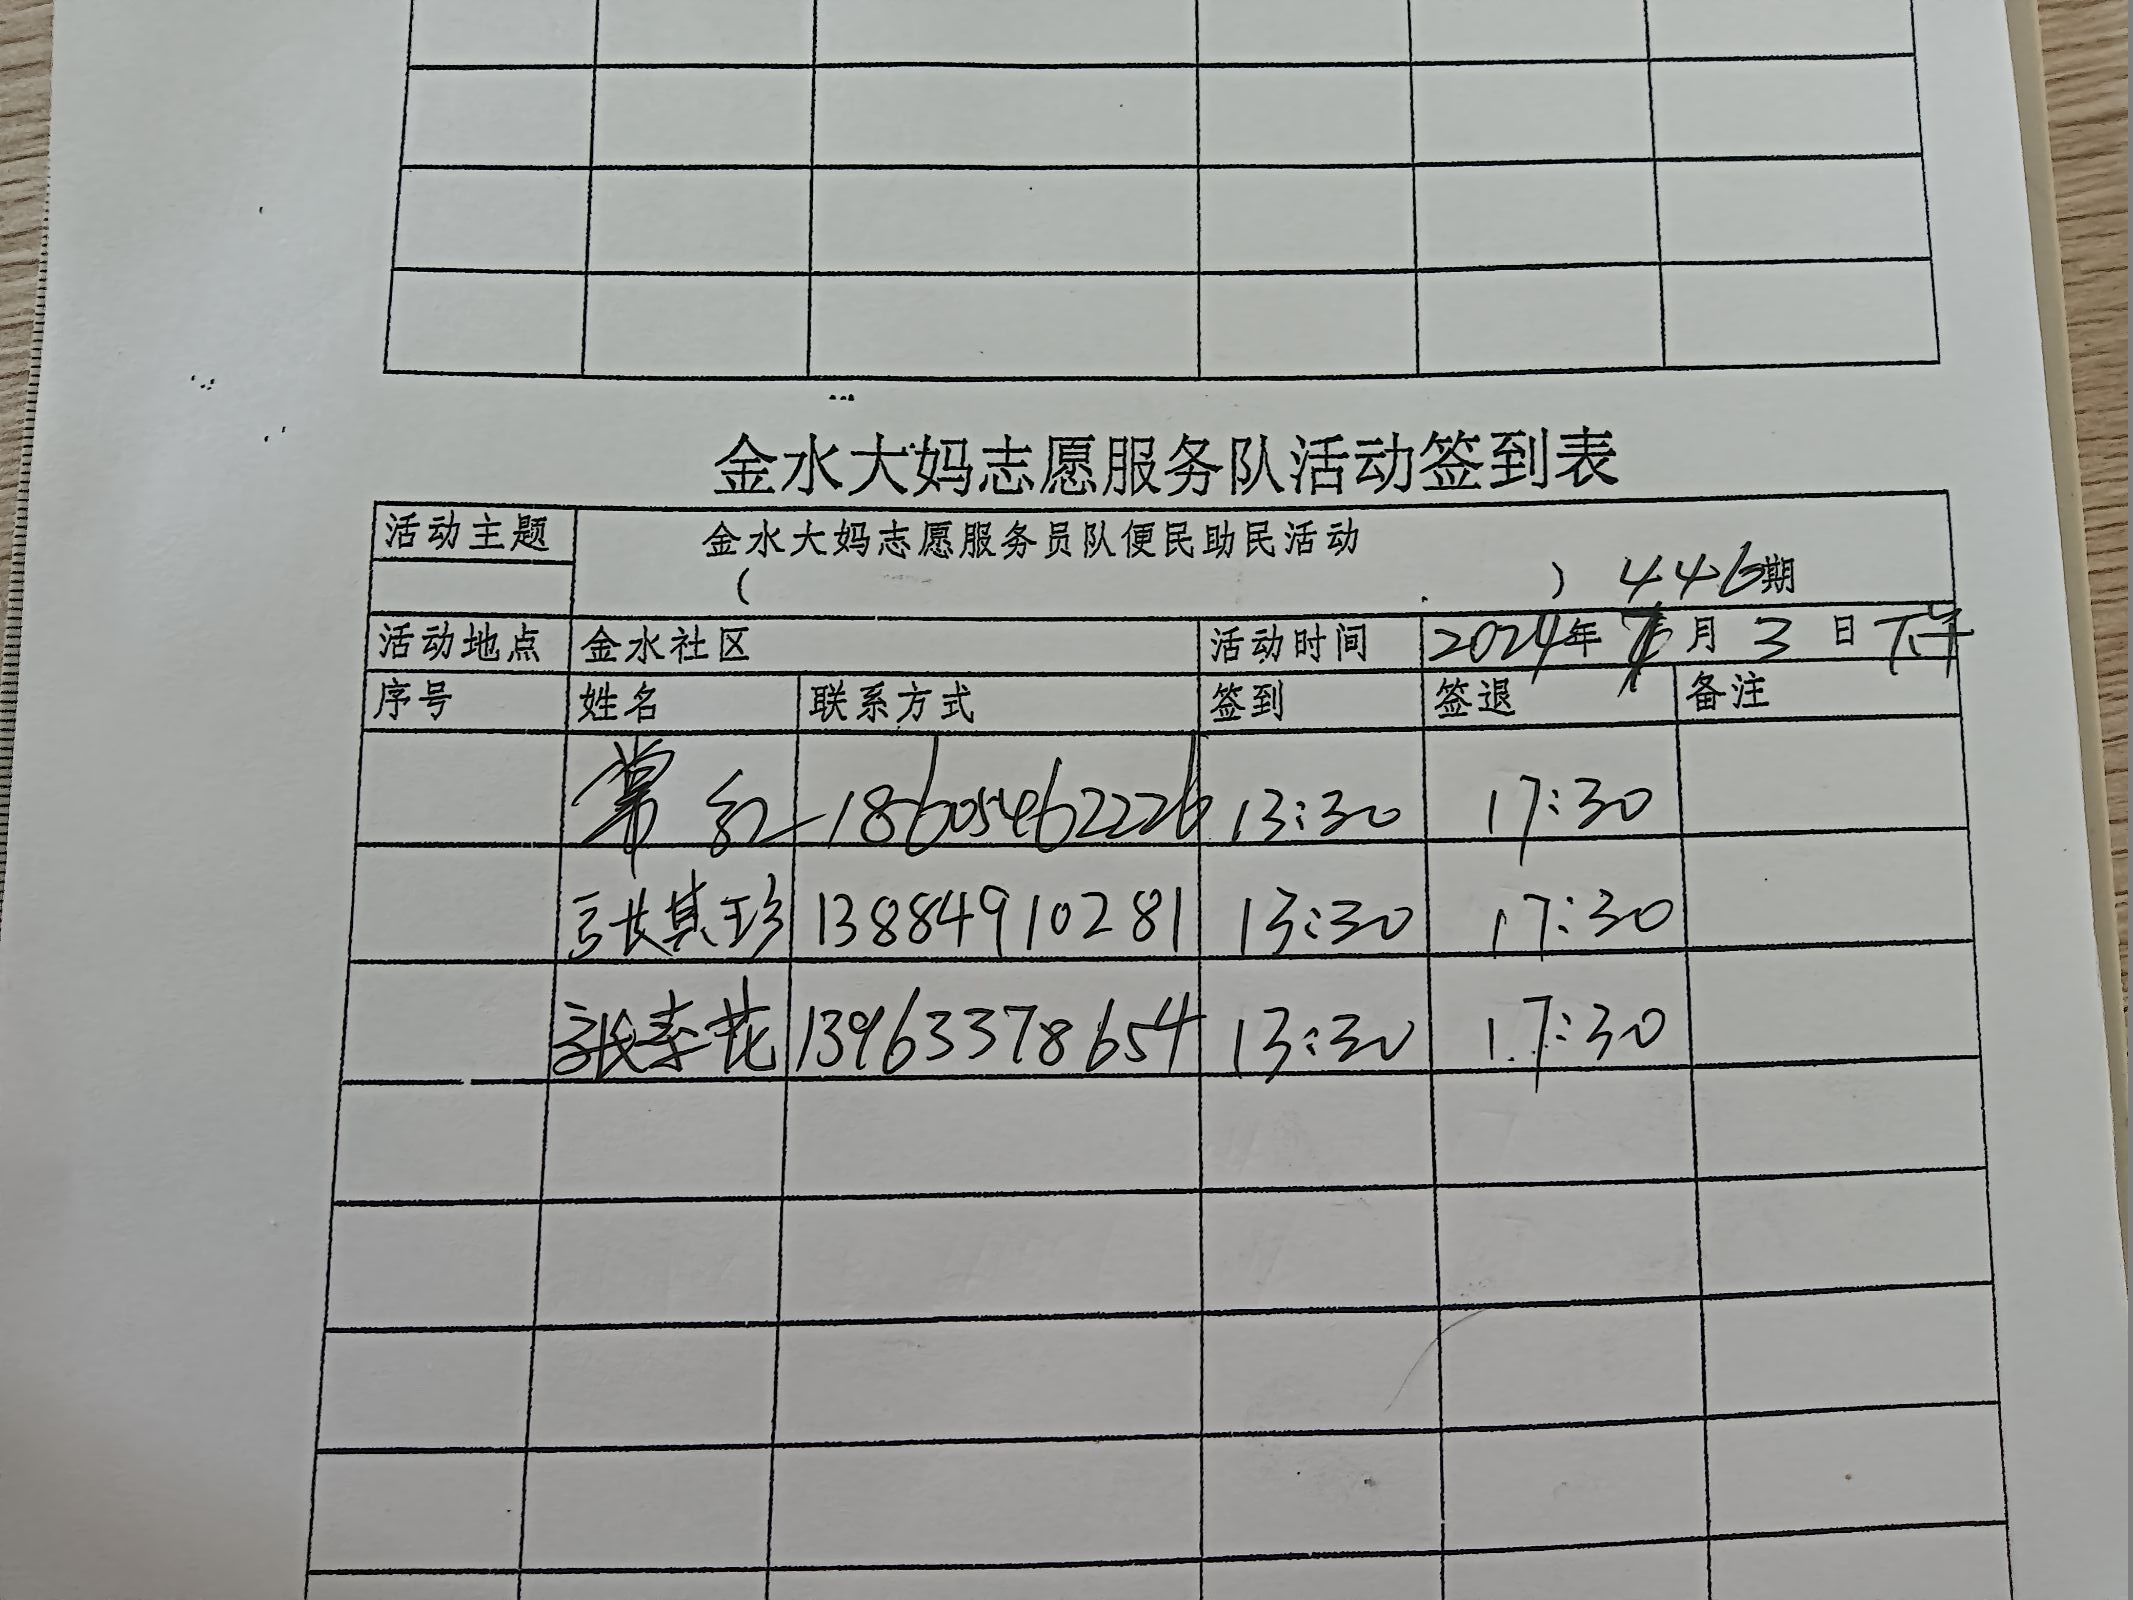 金水大妈志愿服务队活动签到表
活动主题 金水大妈志愿服务员队便民助民活动
( ) 446期
活动地点 金水社区 活动时间 2024年 月 3 日 下午
序号 姓名 联系方式 签到 签退 备注
常红 18605462226 13:30 17:30
张其珍 13884910281 13:30 17:30
张素花 13963378654 13:30 17:30